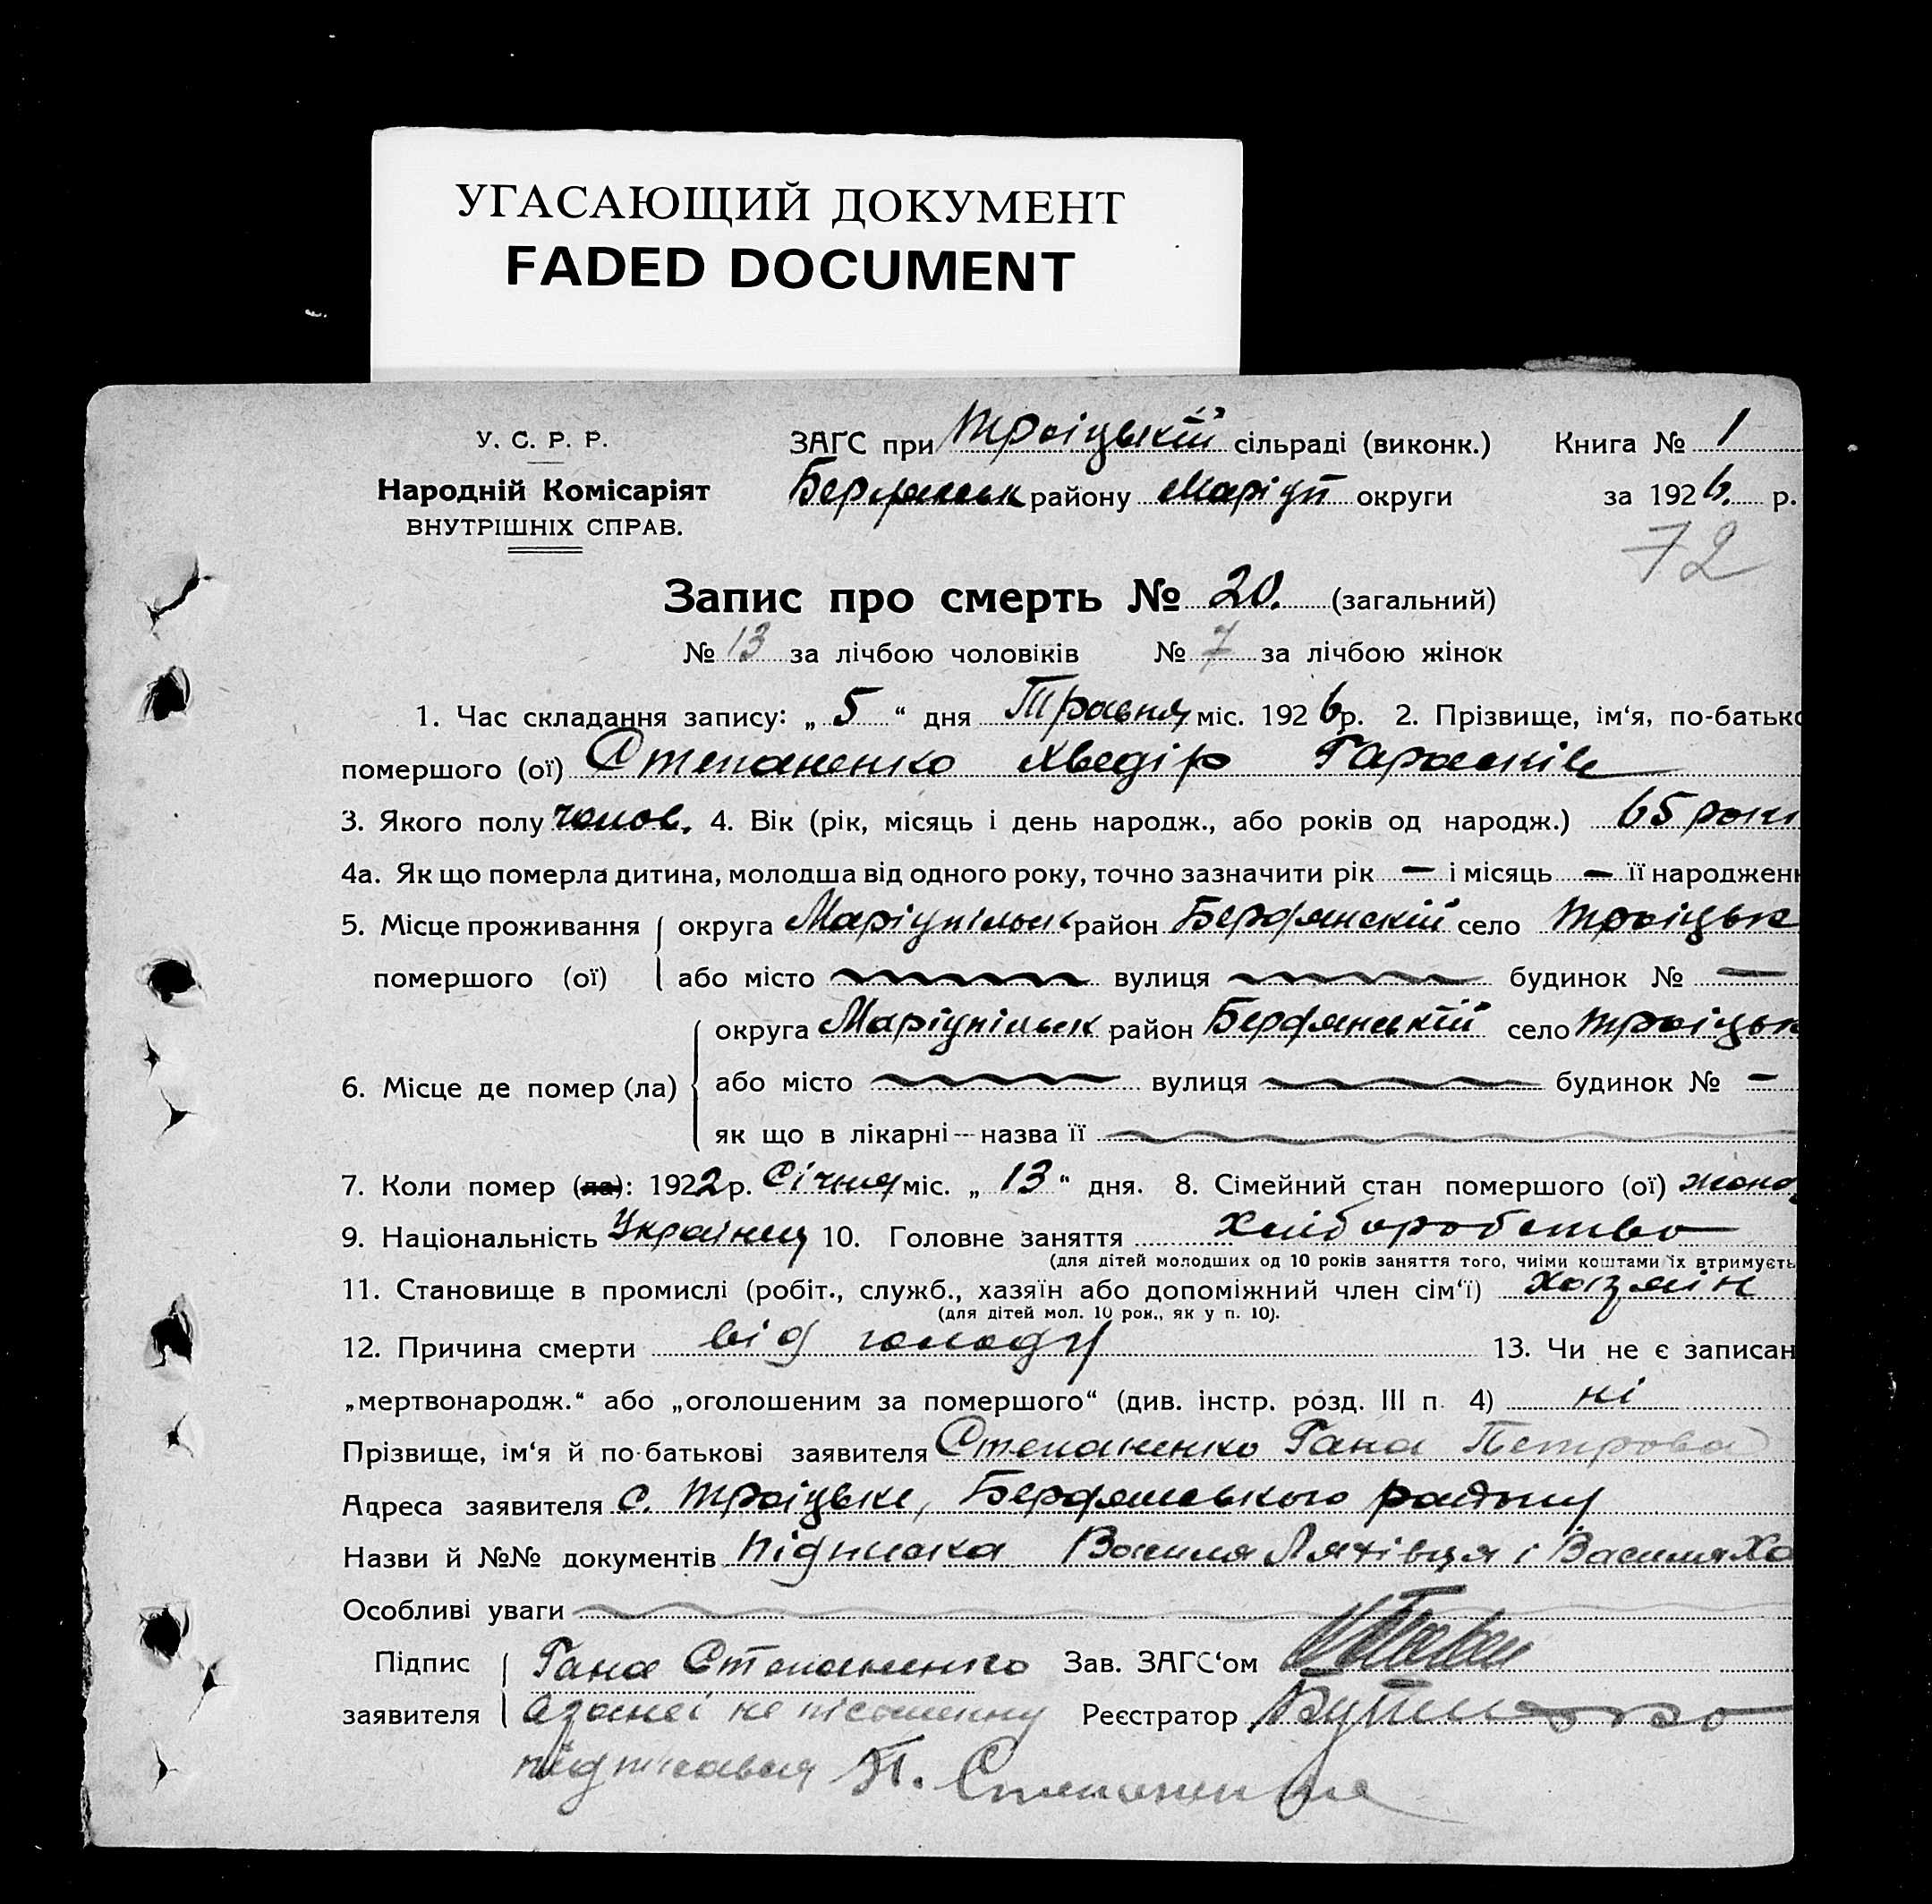 УГАСАЮЩИЙ ДОКУМЕНТ
FADED DOCUMENT
У. С. Р. Р.
Народній Комісаріят
ВНУТРІШНІХ СПРАВ.
ЗАҐС при Троіцькій сільраді (виконк.) Книга № 1
Бердянськ району Маріуп округи за 1926. р.
72
Запис про смерть № 20. (загальний)
№ 13 за лічбою чоловіків № 7 за лічбою жінок
1. Час складання запису: „ 5 “ дня Травня міс. 1926 р. 2. Прізвище, ім‘я, по-батько
помершого (ої) Степаненко Хведір Гараськів
3. Якого полу чолов. 4. Вік (рік, місяць і день народж., або років од народж.) 65 роки
4а. Як що померла дитина, молодша від одного року, точно зазначити рік — і місяць — її народженн
5. Місце проживання округа Маріупільск район Бердянскій село Троіцьке
помершого (ої) або місто вулиця будинок № —
округа Маріупільск район Бердянській село Троіцьк
6. Місце де помер (ла) або місто вулиця будинок № —
як що в лікарні—назва її
7. Коли помер (ла): 1922 р. Січня міс. „ 13 “ дня. 8. Сімейний стан помершого (ої)
9. Національність Українец 10. Головне заняття Хліборобство
(для дітей молодших од 10 років заняття того, чиїми коштами їх втримуєть
11. Становище в промислі (робіт., служб., хазяїн або допоміжний член сім‘ї) хазяін
(для дітей мол. 10 рок., як у п. 10).
12. Причина смерти від голоду 13. Чи не є записан
„мертвонародж.“ або „оголошеним за помершого“ (див. інстр. розд. III п. 4) ні
Прізвище, ім‘я й по-батькові заявителя Степаненко Гана Петрова
Адреса заявителя с. Троіцьке, Бердянського району
Назви й №№ документів підписка Василя Ляхівця і Василя Хо
Особливі уваги
Підпис Гана Степаненко Зав. ЗАГС‘ом
заявителя а за неі не пісьменну Реєстратор
підписався П. Степаненко